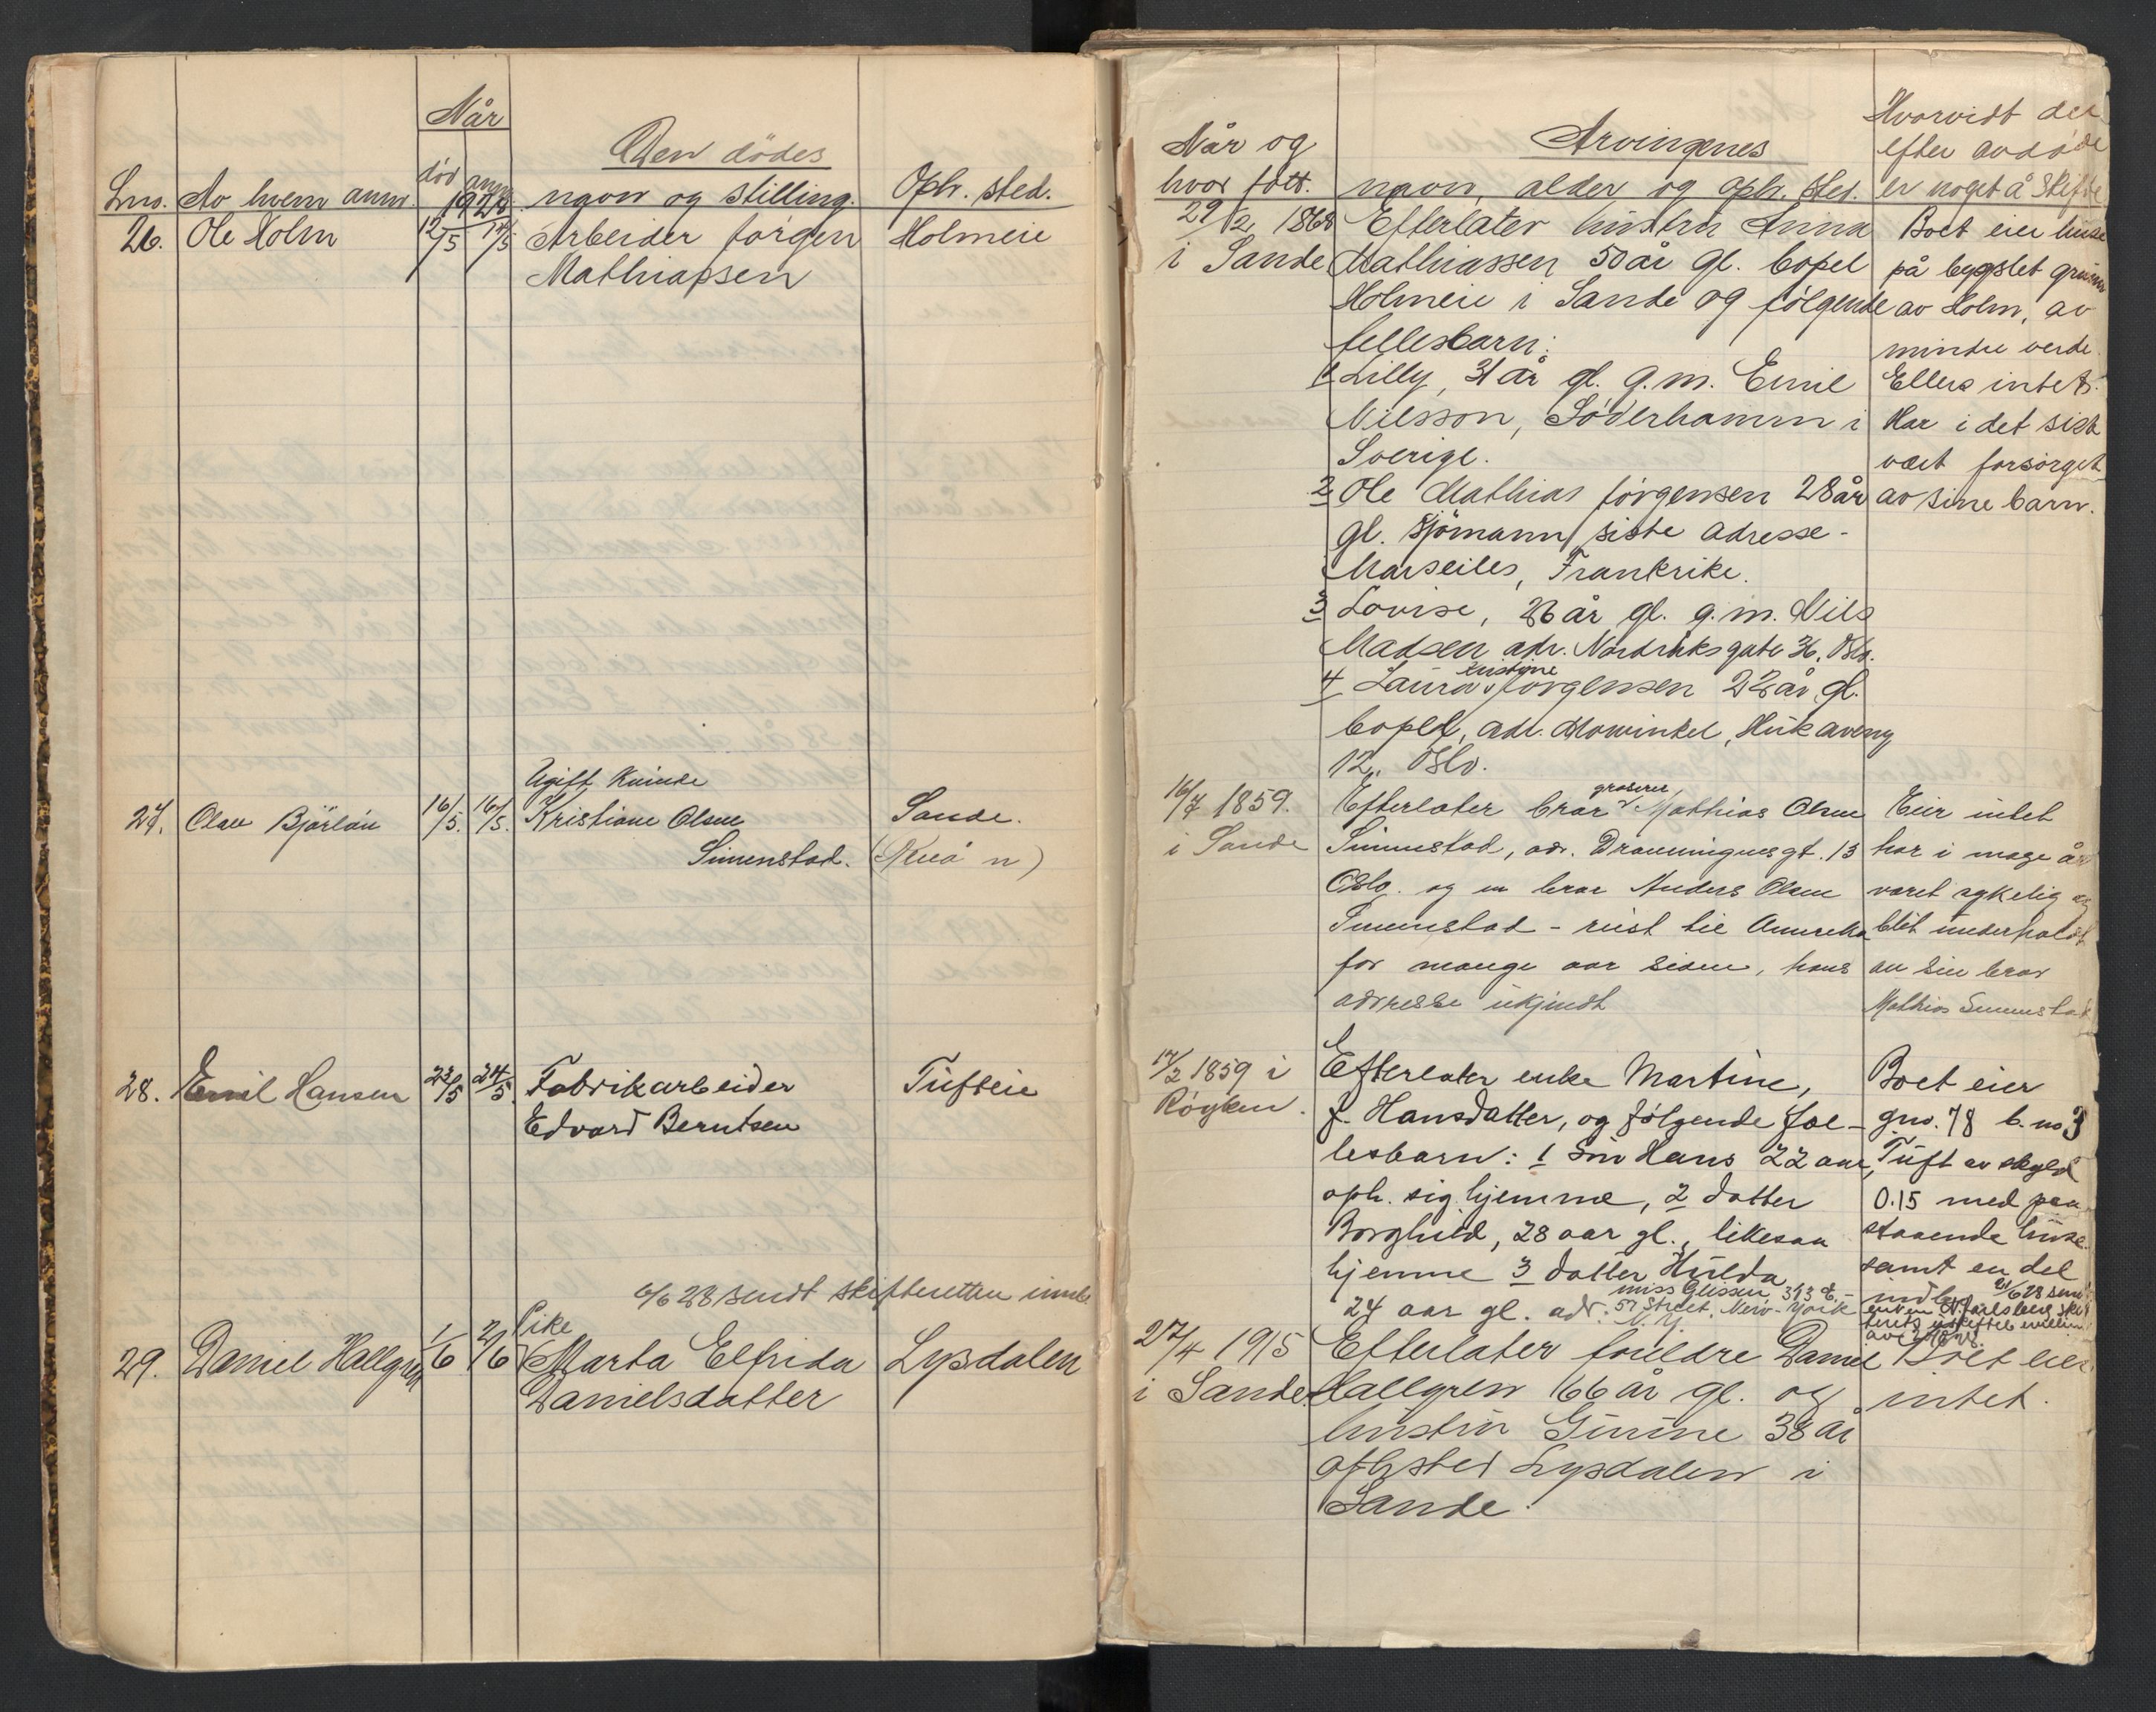 Når
Den dödes
Lno. Av hvem anm. död anm. 1928. navn og stilling. Oph. sted.
26. Ole Holm 12/5 14/5 Arbeider Jörgen Holmeie
Mathiassen
Ugift Kvinde
27. Olav Bjärløv 16/5. 16/5. Kristiane Olsen Sande.
Simenstad. (Revå n)
28. Emil Hansen 22/5 24/5. Fabrikarbeider Tufteie
Edvard Berntsen
6/6 28 sendt skifteretten innb.
Pike
29. Daniel Hallgren 1/6 2/6 Marta Elfrida Lysdalen
Danielsdatter
Når og
hvor fött.
Arvingenes
navn, alder og oph. sted.
Hvorvidt det
efter avdöde
er noget å skifte
29/2 1868
i Sande
Efterlater hustru Anna
Mathiassen 50 år gl. bopel
Holmeie i Sande og fölgende
fellesbarn:
1 Lilly, 31 år gl. g.m. Emil
Nilsson, Söderhamm i
Sverige.
2 Ole Mathias Jörgensen 28 år
gl. Sjömann siste adresse -
Marseiles, Frankrike.
3 Lovise, 26 år gl. g.m. Nils
Madsen adr. Nordråksgate 36, Oslo.
kristine
4 Laura Jörgensen 22 år gl.
bopel, adr. Mowinkel, Huk aveny
12, Oslo.
Boet eier huse
på bygslet grunn
av Holm, av
mindre verde.
Ellers intet.
Har i det siste
vært forsörget
av sine barn.
16/7 1859.
i Sande
groserer
Efterlater bror Mathias Olsen
Simenstad, adr. Dronningensgt. 13
Oslo. og en bror Anders Olsen
Simenstad - reist til Amerika
for mange aar siden, hans
adresse ukjendt
Eier intet
har i mage år
været sykelig og
blit underholdt
av sin bror
Mathias Simenstad
17/2 1859 i
Röyken.
Efterlater enke Martine,
f. Hansdatter, og fölgende fæl-
lesbarn: 1 Sön Hans 22 aar,
oph. sig hjemme, 2 datter
Borghild, 28 aar gl., likesaa
hjemme 3 datter Hulda
miss Glissen, 313 E. -
24 aar gl. adr: 57 Street. New-York
N. Y.
Boet eier
gno. 78 b. no 3
Tuft av skyld
0.15 med paa
staaende huse
samt en del
indbo
27/4 1915
i Sande.
Efterlater foreldre Daniel
Hallgren 66 år gl. og
hustru Gunine 38 år
oph. sted Lysdalen i
Sande.
Boet eier
intet.